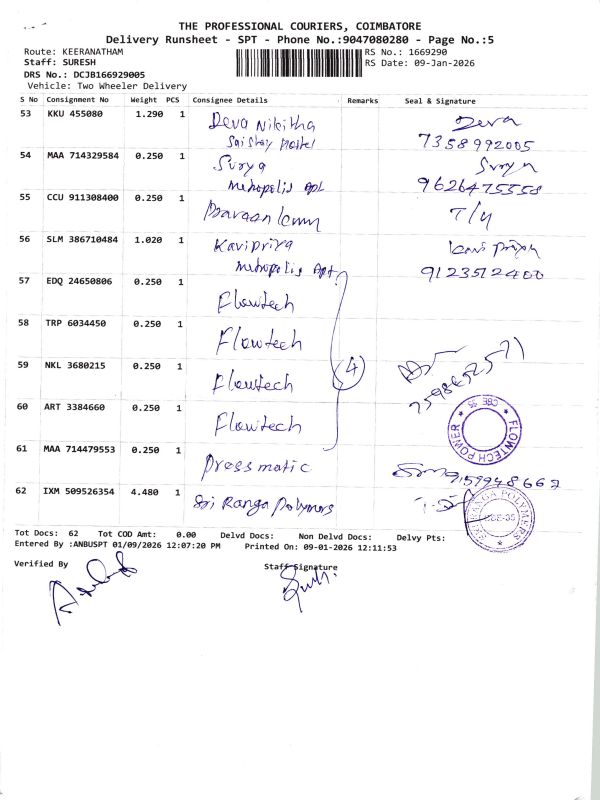 THE PROFESSIONAL COURIERS, COIMBATORE
Delivery Runsheet - SPT - Phone No.:9047080280 - Page No.:5
Route: KEERANATHAM
Staff: SURESH
DRS No.: DCJB166929005
Vehicle: Two Wheeler Delivery
RS No.: 1669290
RS Date: 09-Jan-2026
S No Consignment No Weight PCS Consignee Details Remarks Seal & Signature
53 KKU 455080 1.290 1 Deva Nikitha Deva
7358992005
54 MAA 714329584 0.250 1 Surya Surya
Metropolis Apt 9626475558
55 CCU 911308400 0.250 1 T/y
56 SLM 386710484 1.020 1 Kavipriya
Metropolis Apt 9123512400
57 EDQ 24650806 0.250 1 Flowtech
58 TRP 6034450 0.250 1 Flowtech
59 NKL 3680215 0.250 1 Flowtech (4)
60 ART 3384660 0.250 1 Flowtech
FLOWTECH POWER * CBE 35 *
61 MAA 714479553 0.250 1 Pressmatic
62 IXM 509526354 4.480 1 Sri Ranga Polymers
SRI RANGA POLYMERS
Tot Docs: 62 Tot COD Amt: 0.00 Delvd Docs: Non Delvd Docs: Delvy Pts:
Entered By :ANBUSPT 01/09/2026 12:07:20 PM Printed On: 09-01-2026 12:11:53
Verified By
Staff Signature